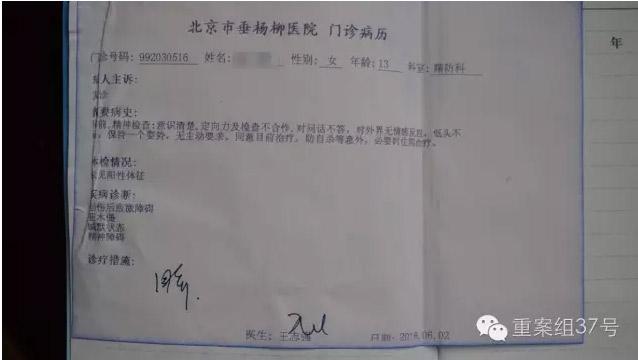 北京市垂杨柳医院 门诊病历
门诊号码: 992030516 姓名: 性别: 女 年龄: 13 科室: 精防科
人主诉:
病史:
精神检查: 意识清楚, 定向力及检查不合作, 对问话不答, 对外界无情感反应, 低头不
保持一个姿势, 无主动要求, 同意目前治疗, 防自杀等意外, 必要时住院治疗。
体检情况:
未见阳性体征
疾病诊断:
创伤后应激障碍
亚木僵
缄默状态
精神障碍
诊疗措施:
医生: 王志强 日期: 2016.06.02
年
重案组37号